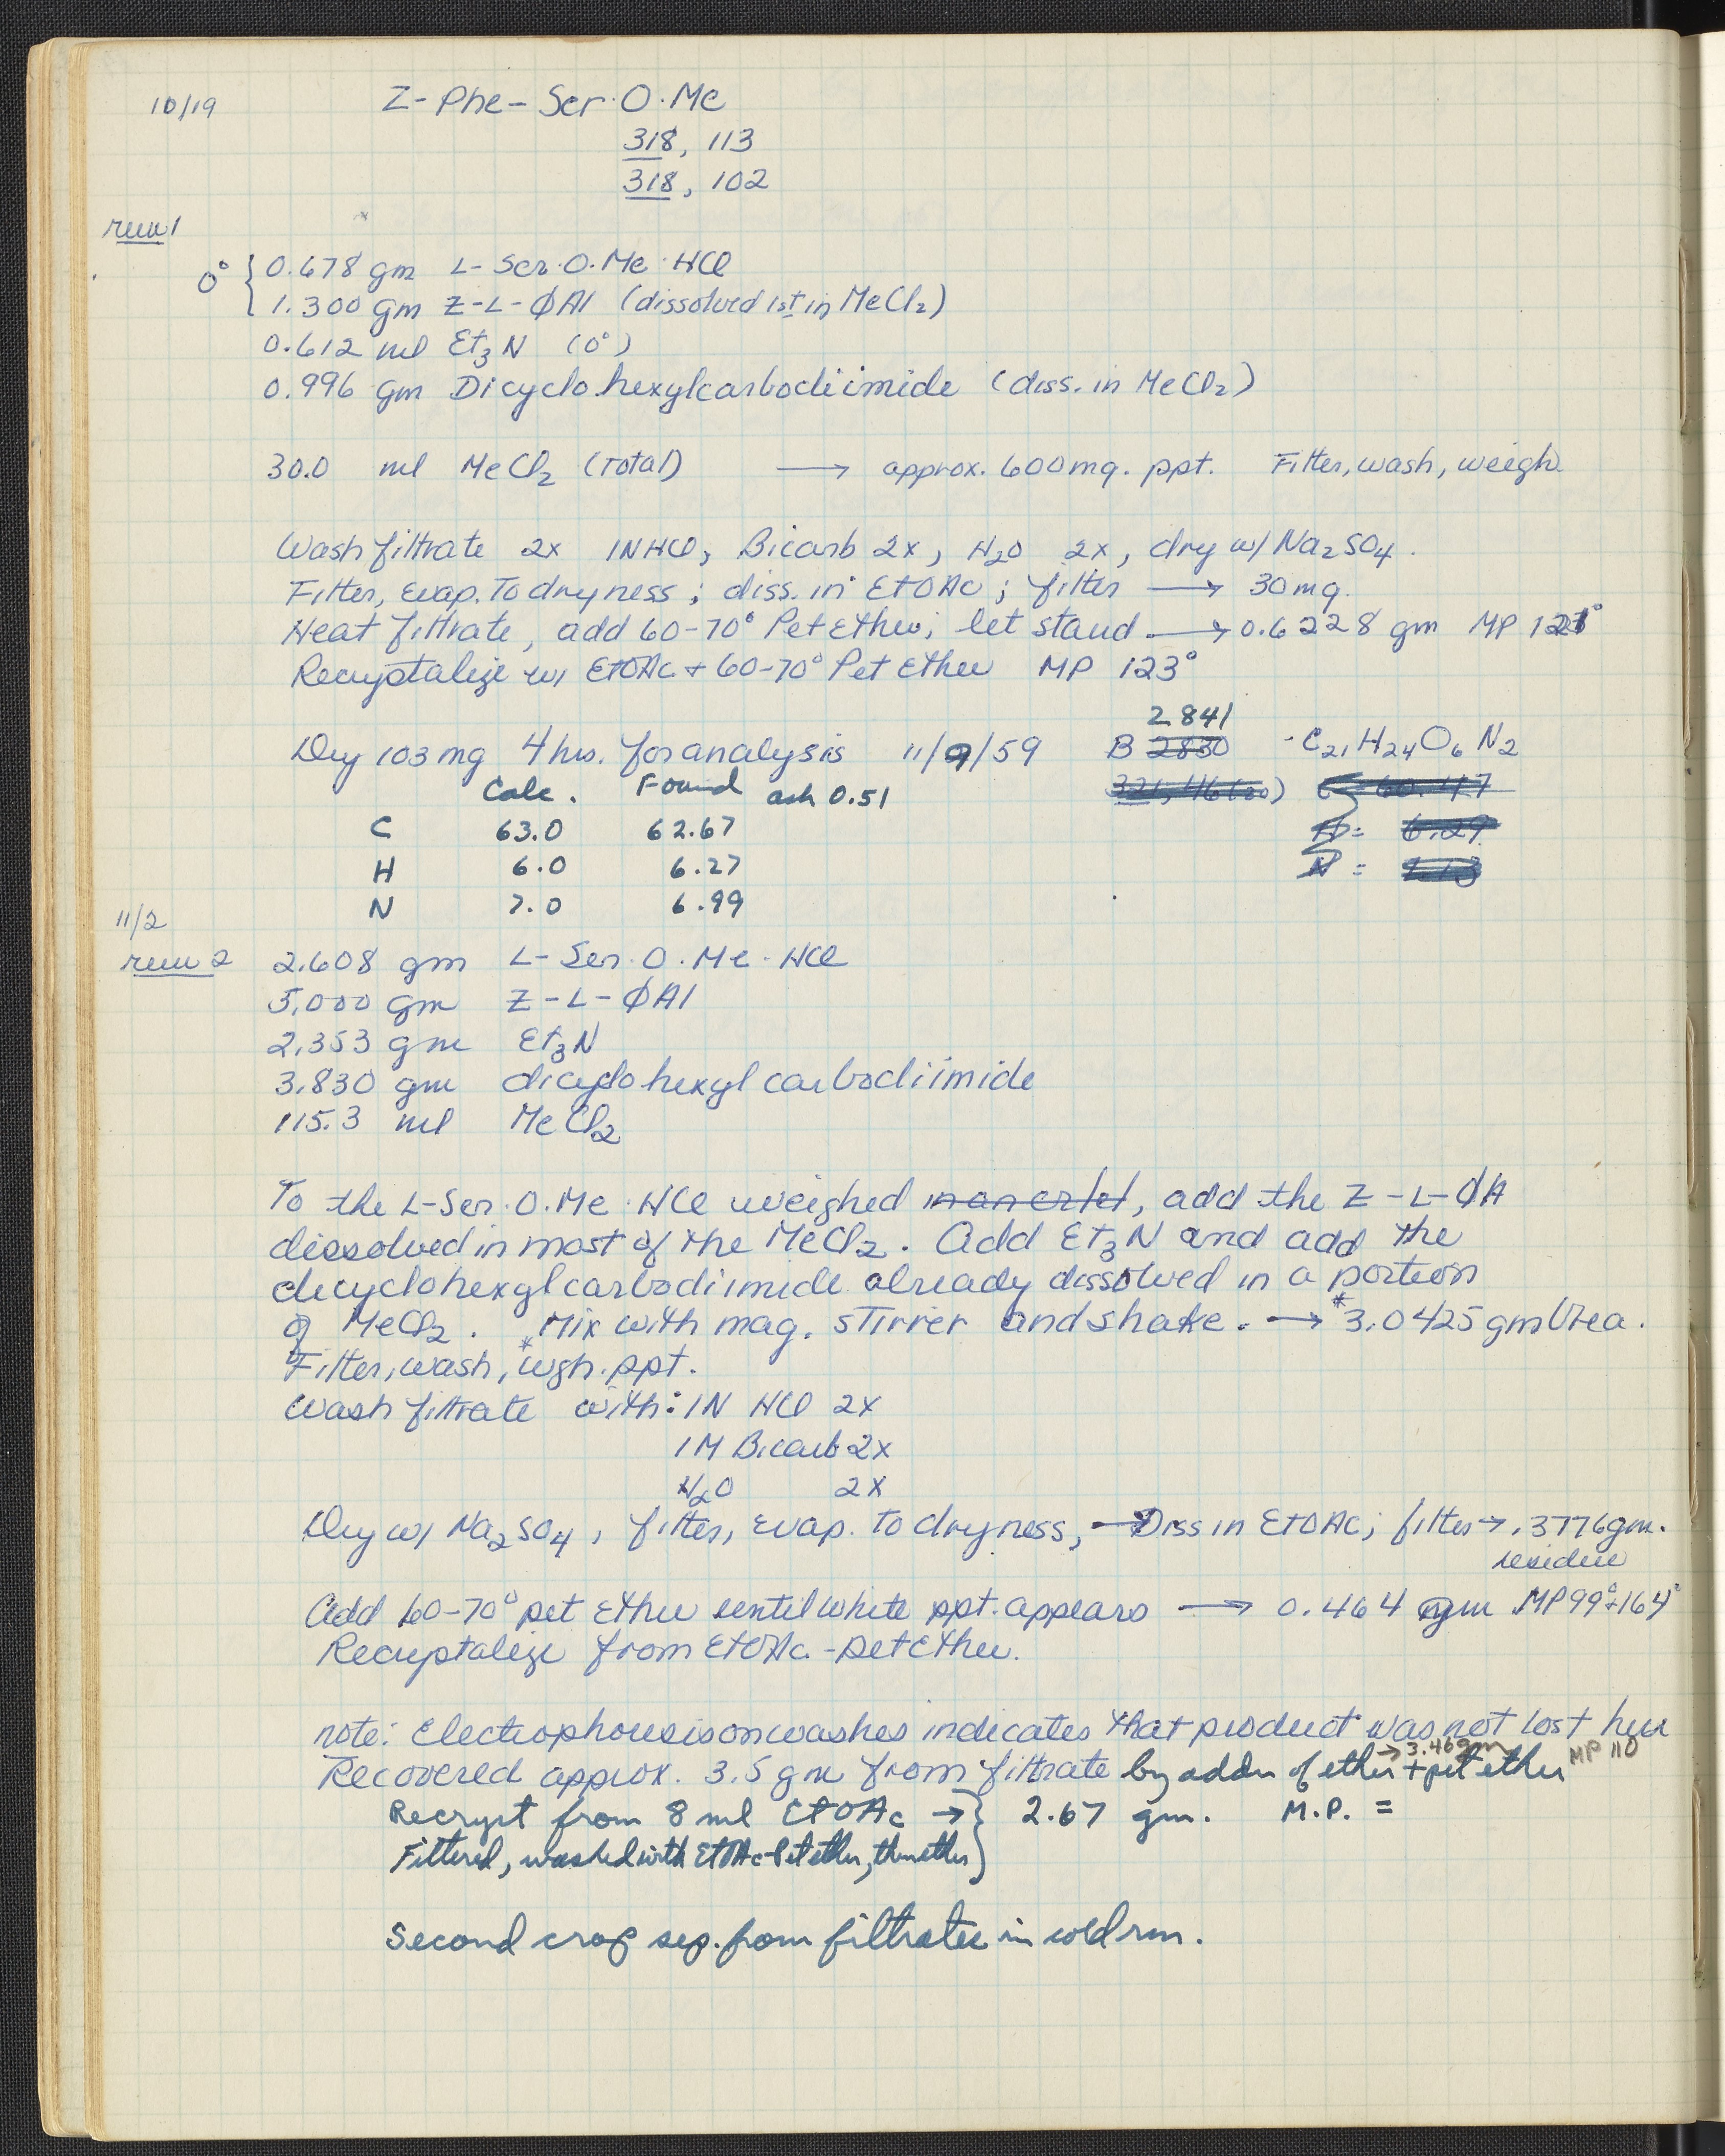 10/19 Z-Phe-Ser·O·Me
318, 113
318, 102
run 1
0° { 0.678 gm L-Ser·O·Me·HCl
1.300 gm Z-L-ϕAl (dissolved 1st in MeCl₂)
0.612 ml Et₃N (0°)
0.996 gm Dicyclohexylcarbodiimide (diss. in MeCl₂)
30.0 ml MeCl₂ (Total) → approx. 600 mg. ppt. Filter, wash, weigh.
Wash filtrate 2x 1N HCl, Bicarb 2x, H₂O 2x, dry w/ Na₂SO₄.
Filter, evap. To dryness; diss. in EtOAc; filter → 30 mg.
Heat filtrate, add 60-70° Pet Ether; let stand → 0.6228 gm MP 121°
Recryptalize w/ EtOAc + 60-70° Pet Ether MP 123°
2841
Dry 103 mg 4 hrs. for analysis 11/9/59 B 2830 - C₂₁H₂₄O₆N₂
Calc. Found ash 0.51
C 63.0 62.67
H 6.0 6.27 H = 6.29
N 7.0 6.99 N =
11/2
run 2 2.608 gm L-Ser·O·Me·HCl
5.000 gm Z-L-ϕAl
2.353 gm Et₃N
3.830 gm dicyclohexylcarbodiimide
115.3 ml MeCl₂
To the L-Ser·O·Me·HCl weighed, add the Z-L-ϕA
dissolved in most of the MeCl₂. Add Et₃N and add the
dicyclohexylcarbodiimide already dissolved in a portion
of MeCl₂. Mix with mag. stirrer and shake. → *3.0425 gm Urea.
Filter, wash, *wgh. ppt.
Wash filtrate with: 1N HCl 2x
1M Bicarb 2x
H₂O 2x
Dry w/ Na₂SO₄, filter, evap. to dryness, Diss in EtOAc; filter → .3776 gm.
residue
Add 60-70° pet ether until white ppt. appears → 0.464 gm MP 99°+164°
Recryptalize from EtOAc-pet Ether.
note: Electrophoresis on washes indicates that product was not lost here
→ 3.46 gm MP 110
Recovered approx. 3.5 gm from filtrate by addn of ether + pet ether
Recryst from 8 ml EtOAc → } 2.67 gm. M.P. =
Filtered, washed with EtOAc-Pet ether, then ether }
Second crop sep. from filtrates in cold rm.